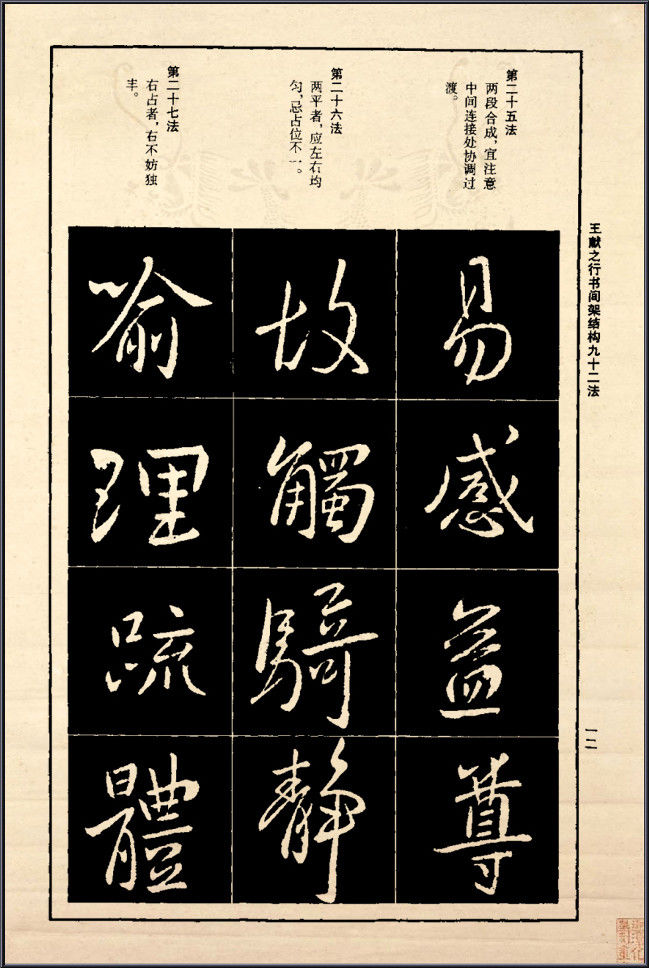 王献之行书间架结构九十二法
第二十五法
两段合成，宜注意
中间连接处协调过
渡。
易
感
益
尊
第二十六法
两平者，应左右均
匀，忌占位不一。
故
觸
騎
静
第二十七法
右占者，右不妨独
丰。
喻
理
疏
體
一二